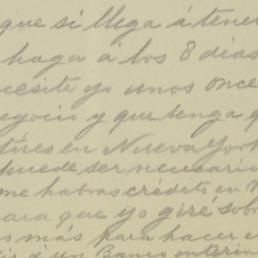 que si llega á tener
haga á los 8 dias
necesite yo unos once
negocio y que tenga q
en Nueva York
puede ser necesario
me habras crédito en
para que yo gire sobre
más para hacer e
á un Banco